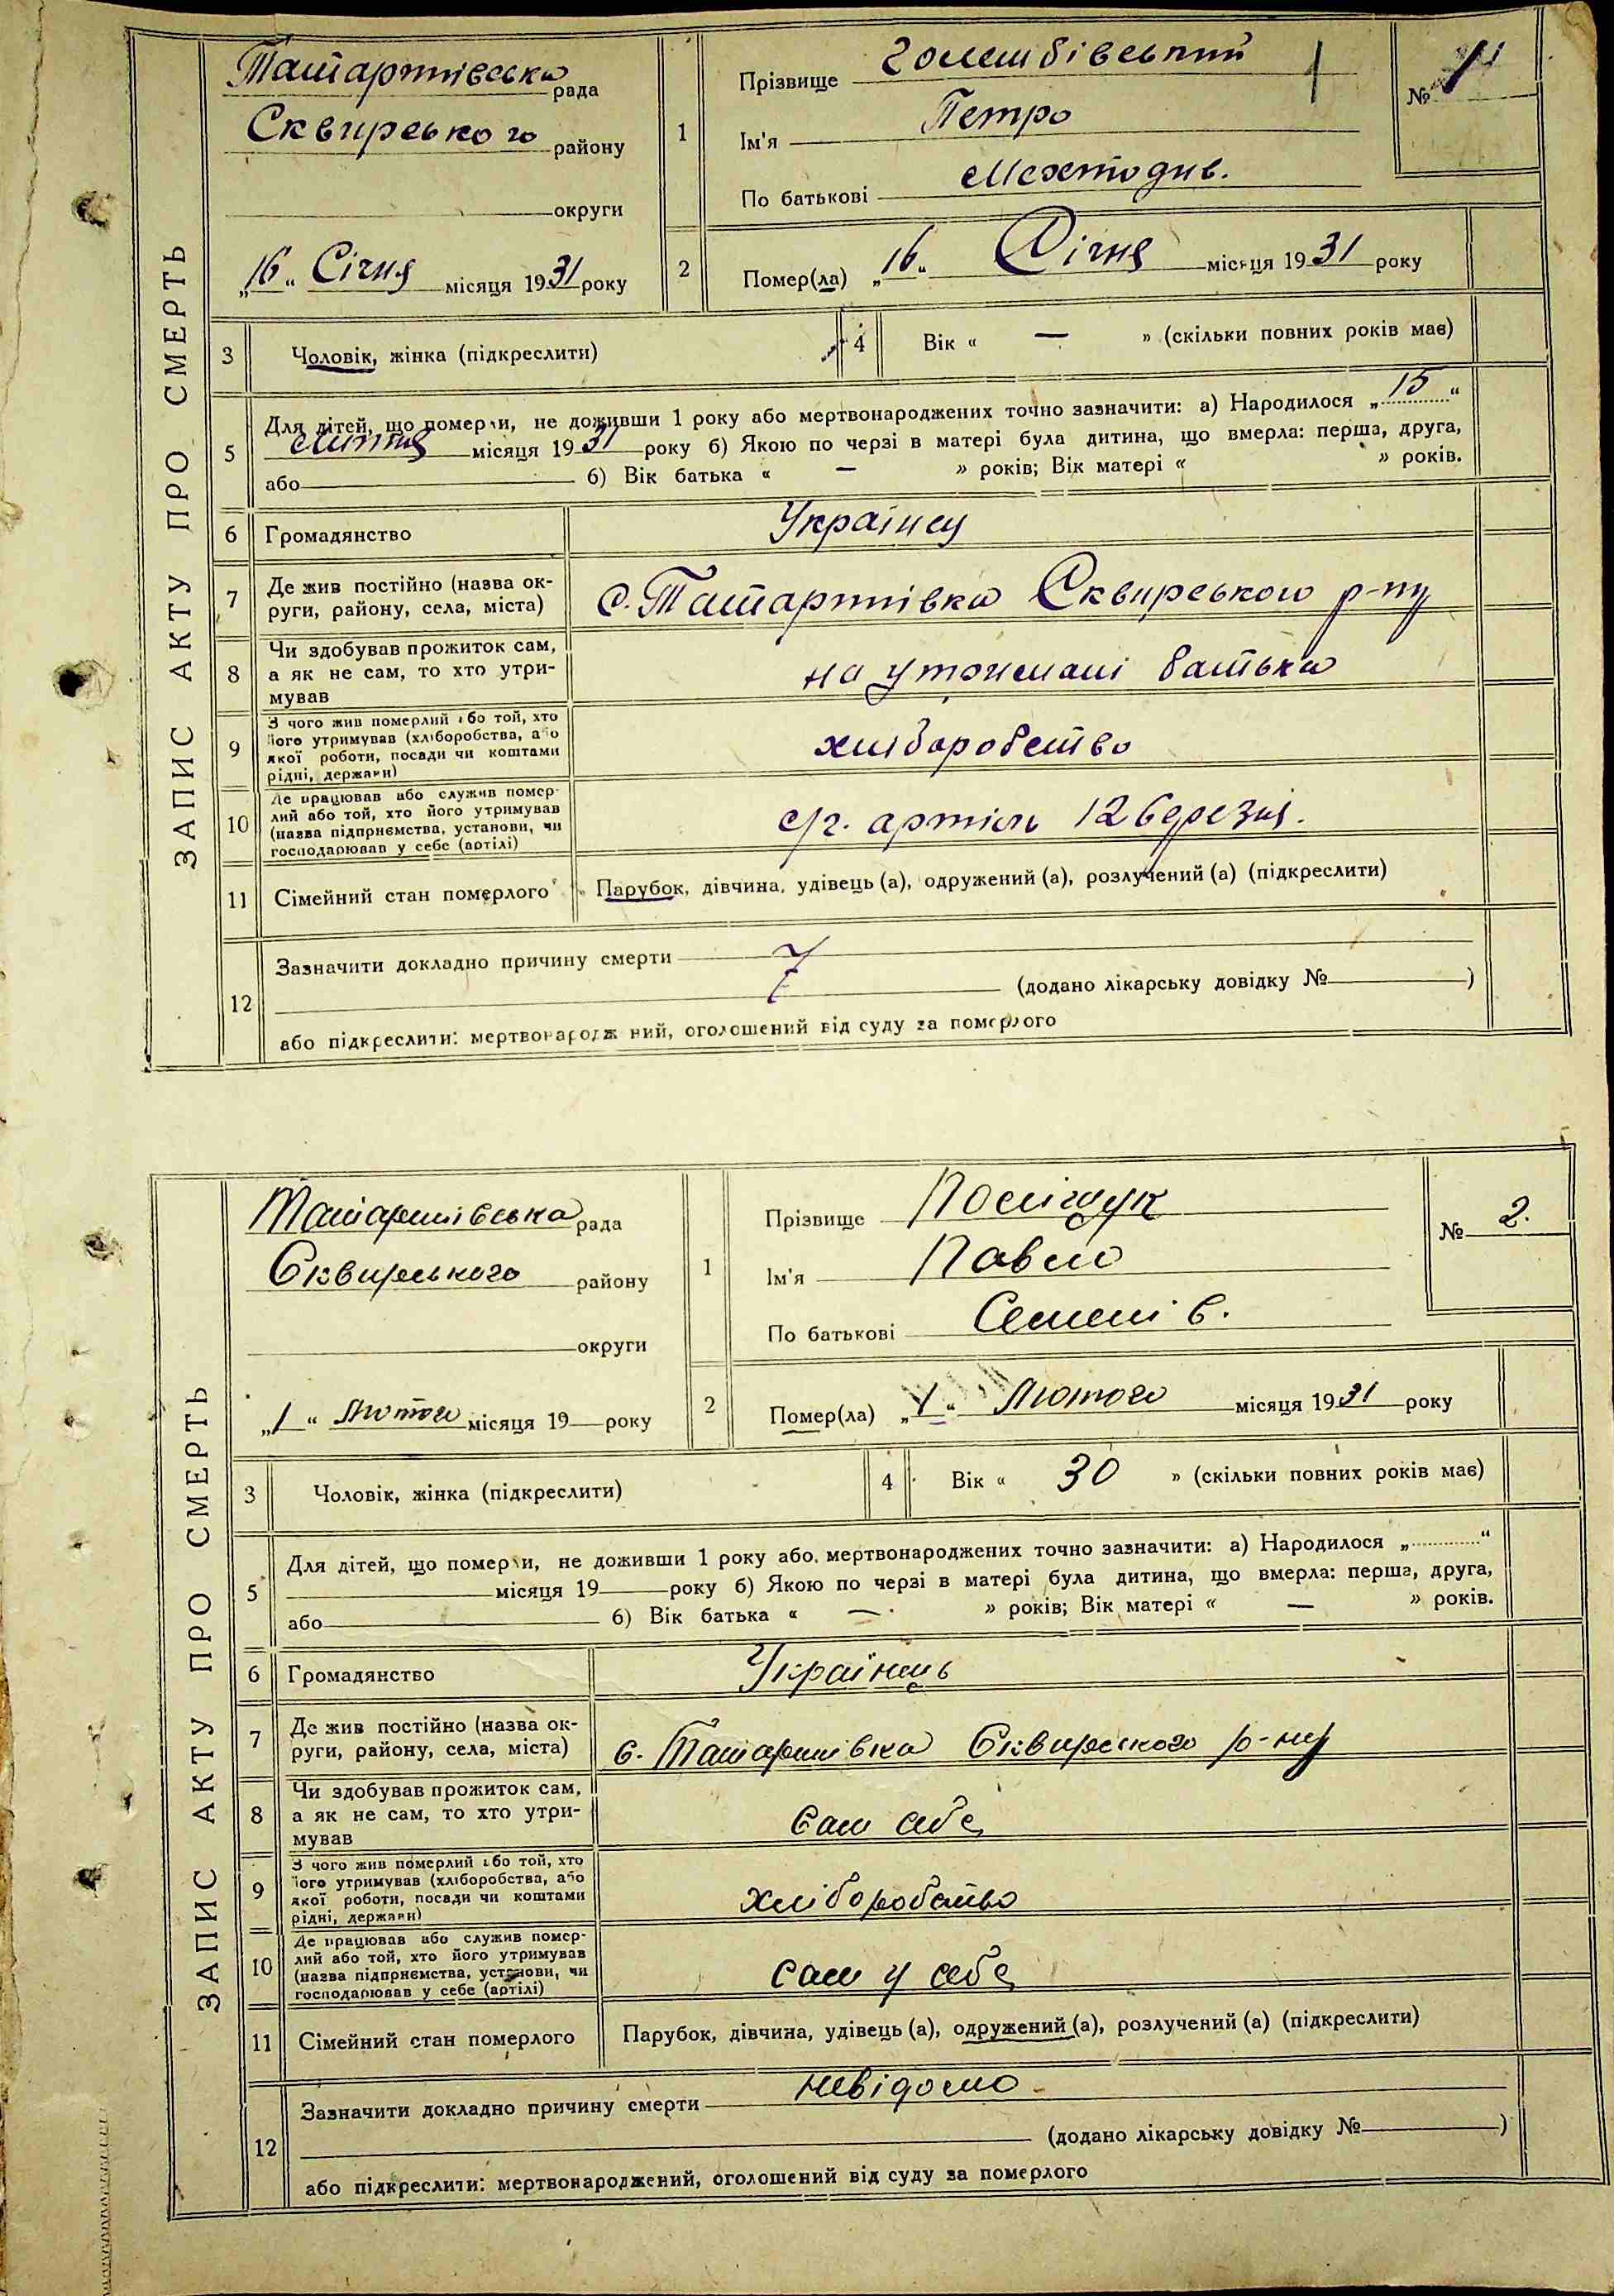 ЗАПИС АКТУ ПРО СМЕРТЬ
Татарнівська рада
Сквирського району
округи
„16“ Січня місяця 1931 року
1
Прізвище
Ім'я Петро
По батькові Мехтодив.
№ 1
2
Помер(ла) „16“ Січня місяця 1931 року
3 Чоловік, жінка (підкреслити)
4 Вік « — » (скільки повних років має)
5 Для дітей, що померли, не доживши 1 року або мертвонароджених точно зазначити: а) Народилося „15“
місяця 1931 року б) Якою по черзі в матері була дитина, що вмерла: перша, друга,
або б) Вік батька « — » років; Вік матері « » років.
6 Громадянство
7 Де жив постійно (назва округи, району, села, міста) с. Татарнівка Сквирського р-ну
8 Чи здобував прожиток сам, а як не сам, то хто утримував на утрнмані батька
9 З чого жив померлий або той, хто його утримував (хліборобства, або якої роботи, посади чи коштами рідні, держави) хліборобство
10 Де працював або служив померлий або той, хто його утримував (назва підприємства, установи, чи господарював у себе (артілі) с/г. артіль 12 березня.
11 Сімейний стан померлого Парубок, дівчина, удівець (а), одружений (а), розлучений (а) (підкреслити)
12 Зазначити докладно причину смерти
(додано лікарську довідку № )
або підкреслити: мертвонароджений, оголошений від суду за померлого
ЗАПИС АКТУ ПРО СМЕРТЬ
рада
Сквирського району
округи
„1“ Лютого місяця 19 року
1
Прізвище Поліщук
Ім'я Павло
По батькові Семенів.
№ 2.
2
Помер(ла) „1“ Лютого місяця 1931 року
3 Чоловік, жінка (підкреслити)
4 Вік « 30 » (скільки повних років має)
5 Для дітей, що померли, не доживши 1 року або мертвонароджених точно зазначити: а) Народилося „ “
місяця 19 року б) Якою по черзі в матері була дитина, що вмерла: перша, друга,
або б) Вік батька « — » років; Вік матері « — » років.
6 Громадянство Українець
7 Де жив постійно (назва округи, району, села, міста) с. Сквирського р-ну
8 Чи здобував прожиток сам, а як не сам, то хто утримував Сам себе
9 З чого жив померлий або той, хто його утримував (хліборобства, або якої роботи, посади чи коштами рідні, держави) хліборобство
10 Де працював або служив померлий або той, хто його утримував (назва підприємства, установи, чи господарював у себе (артілі) сам у себе
11 Сімейний стан померлого Парубок, дівчина, удівець (а), одружений (а), розлучений (а) (підкреслити)
12 Зазначити докладно причину смерти невідомо
(додано лікарську довідку № )
або підкреслити: мертвонароджений, оголошений від суду за померлого